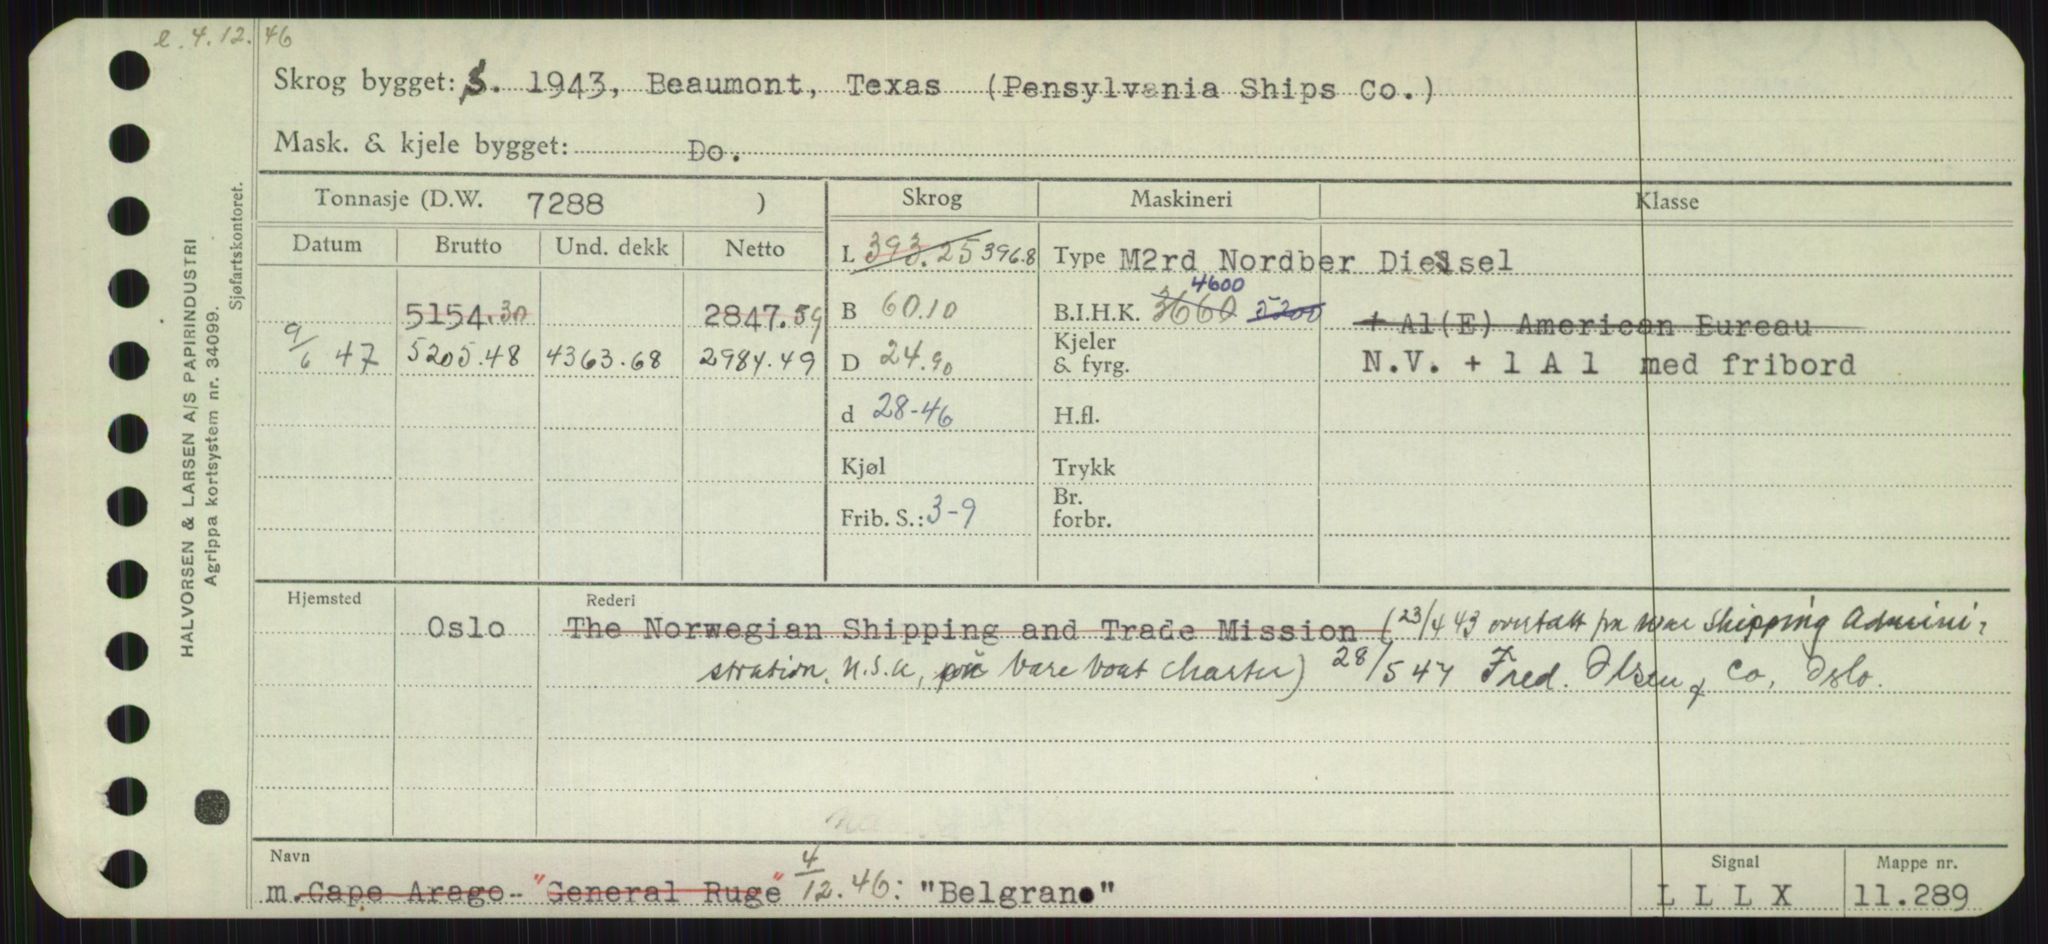 e. 4.12.46
Skrog bygget: S. 1943, Beaumont, Texas (Pensylvania Ships Co.)
Mask. & kjele bygget: Do.
Tonnasje (D.W. 7288 ) Skrog Maskineri Klasse
Datum Brutto Und. dekk Netto
L 393.25 396.8 Type M2rd Nordber Diesel
5154.30 2847.59 B 60.10 B.I.H.K. 3660 4600 5200 + A1(E) American Bureau
9/6 47 5205.48 4363.68 2984.49 D 24.90 Kjeler & fyrg. N.V. + 1 A 1 med fribord
d 28-46 H.fl.
Kjøl Trykk
Frib. S.: 3-9 Br. forbr.
Hjemsted Rederi
Oslo The Norwegian Shipping and Trade Mission (23/4 43 overtatt fra War Shipping Admini-
stration, U.S.A, på bare boat charter) 28/5 47 Fred. Olsen & Co, Oslo.
Navn Signal Mappe nr.
m. Cape Arago - "General Ruge" 4/12.46: "Belgrano" L L L X 11.289
HALVORSEN & LARSEN A/S PAPIRINDUSTRI
Agrippa kortsystem nr. 34099.
Sjøfartskontoret.